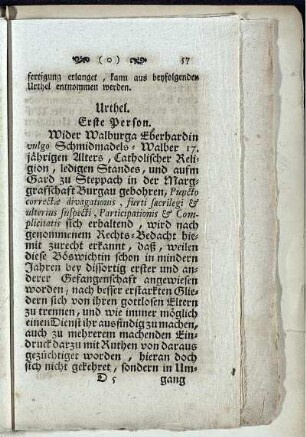 ( o ) 57
fertigung erlanget, kann aus beyfolgender
Urthel entnommen werden.
Urthel.
Erste Person.
Wider Walburga Eberhardin
vulgo Schmidmadels-Walber 17.
jährigen Alters, Catholischer Reli-
gion, ledigen Standes, und aufm
Gard zu Steppach in der Marg-
grafschaft Burgau gebohren, Puncto
correctæ divagationis, furti sacrilegi &
ulterius suspecti, Participationis & Com-
plicitatis sich erhaltend, wird nach
genommenen Rechts-Bedacht hie-
mit zurecht erkannt, daß, weilen
diese Böswichtin schon in mindern
Jahren bey dissortig erster und an-
derer Gefangenschaft angewiesen
worden, nach besser erstarkten Glie-
dern sich von ihren gottlosen Eltern
zu trennen, und wie immer möglich
einen Dienst ihr ausfindig zu machen,
auch zu mehrerem machenden Ein-
druck darzu mit Ruthen von daraus
gezüchtiget worden, hieran doch
sich nicht gekehret, sondern in Um-
D 5 gang